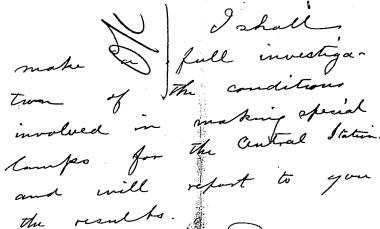 OK
I shall
make a full investiga-
tion of the conditions
involved in making special
lamps for the Central Station
and will report to you
the results.